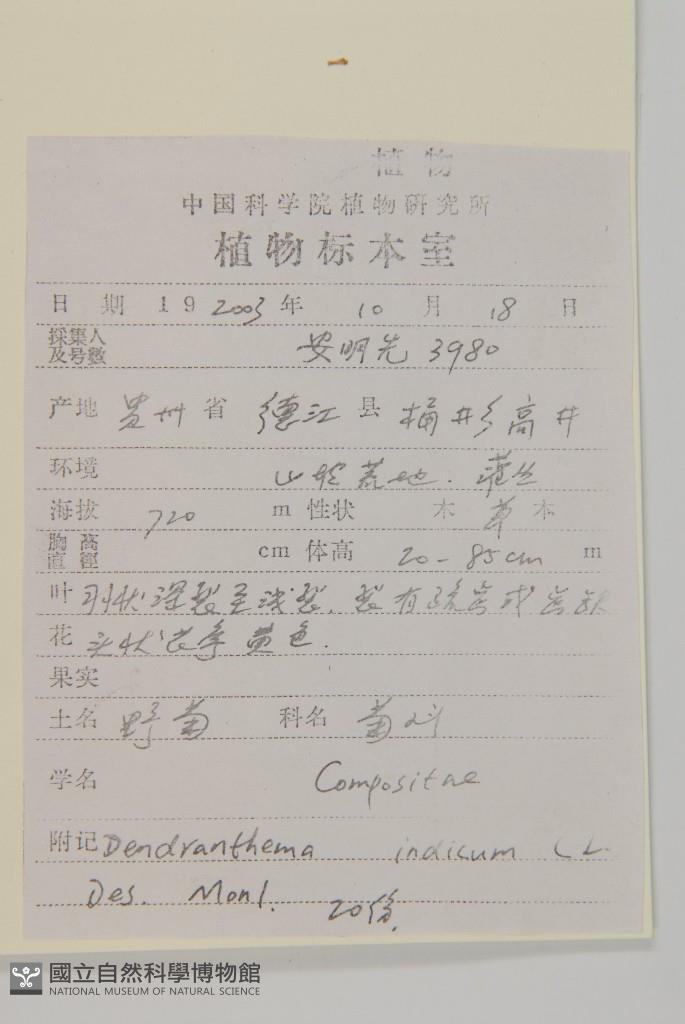 植物
中国科学院植物研究所
植物标本室
日期 19 2003 年 10 月 18 日
採集人及号数 安明先 3980
产地 贵州 省 德江 县 桶井乡高井
环境 山坡荒地. 灌丛
海拔 720 m 性状 木 草 本
胸高直徑 cm 体高 20-85cm m
叶 羽状深裂至浅裂. 裂有疏齿或齿缺
花 头状花序黄色.
果实
土名 野菊 科名 菊科
学名 Compositae
附记 Dendranthema indicum (L.
Des. Moul. 20份.
國立自然科學博物館
NATIONAL MUSEUM OF NATURAL SCIENCE